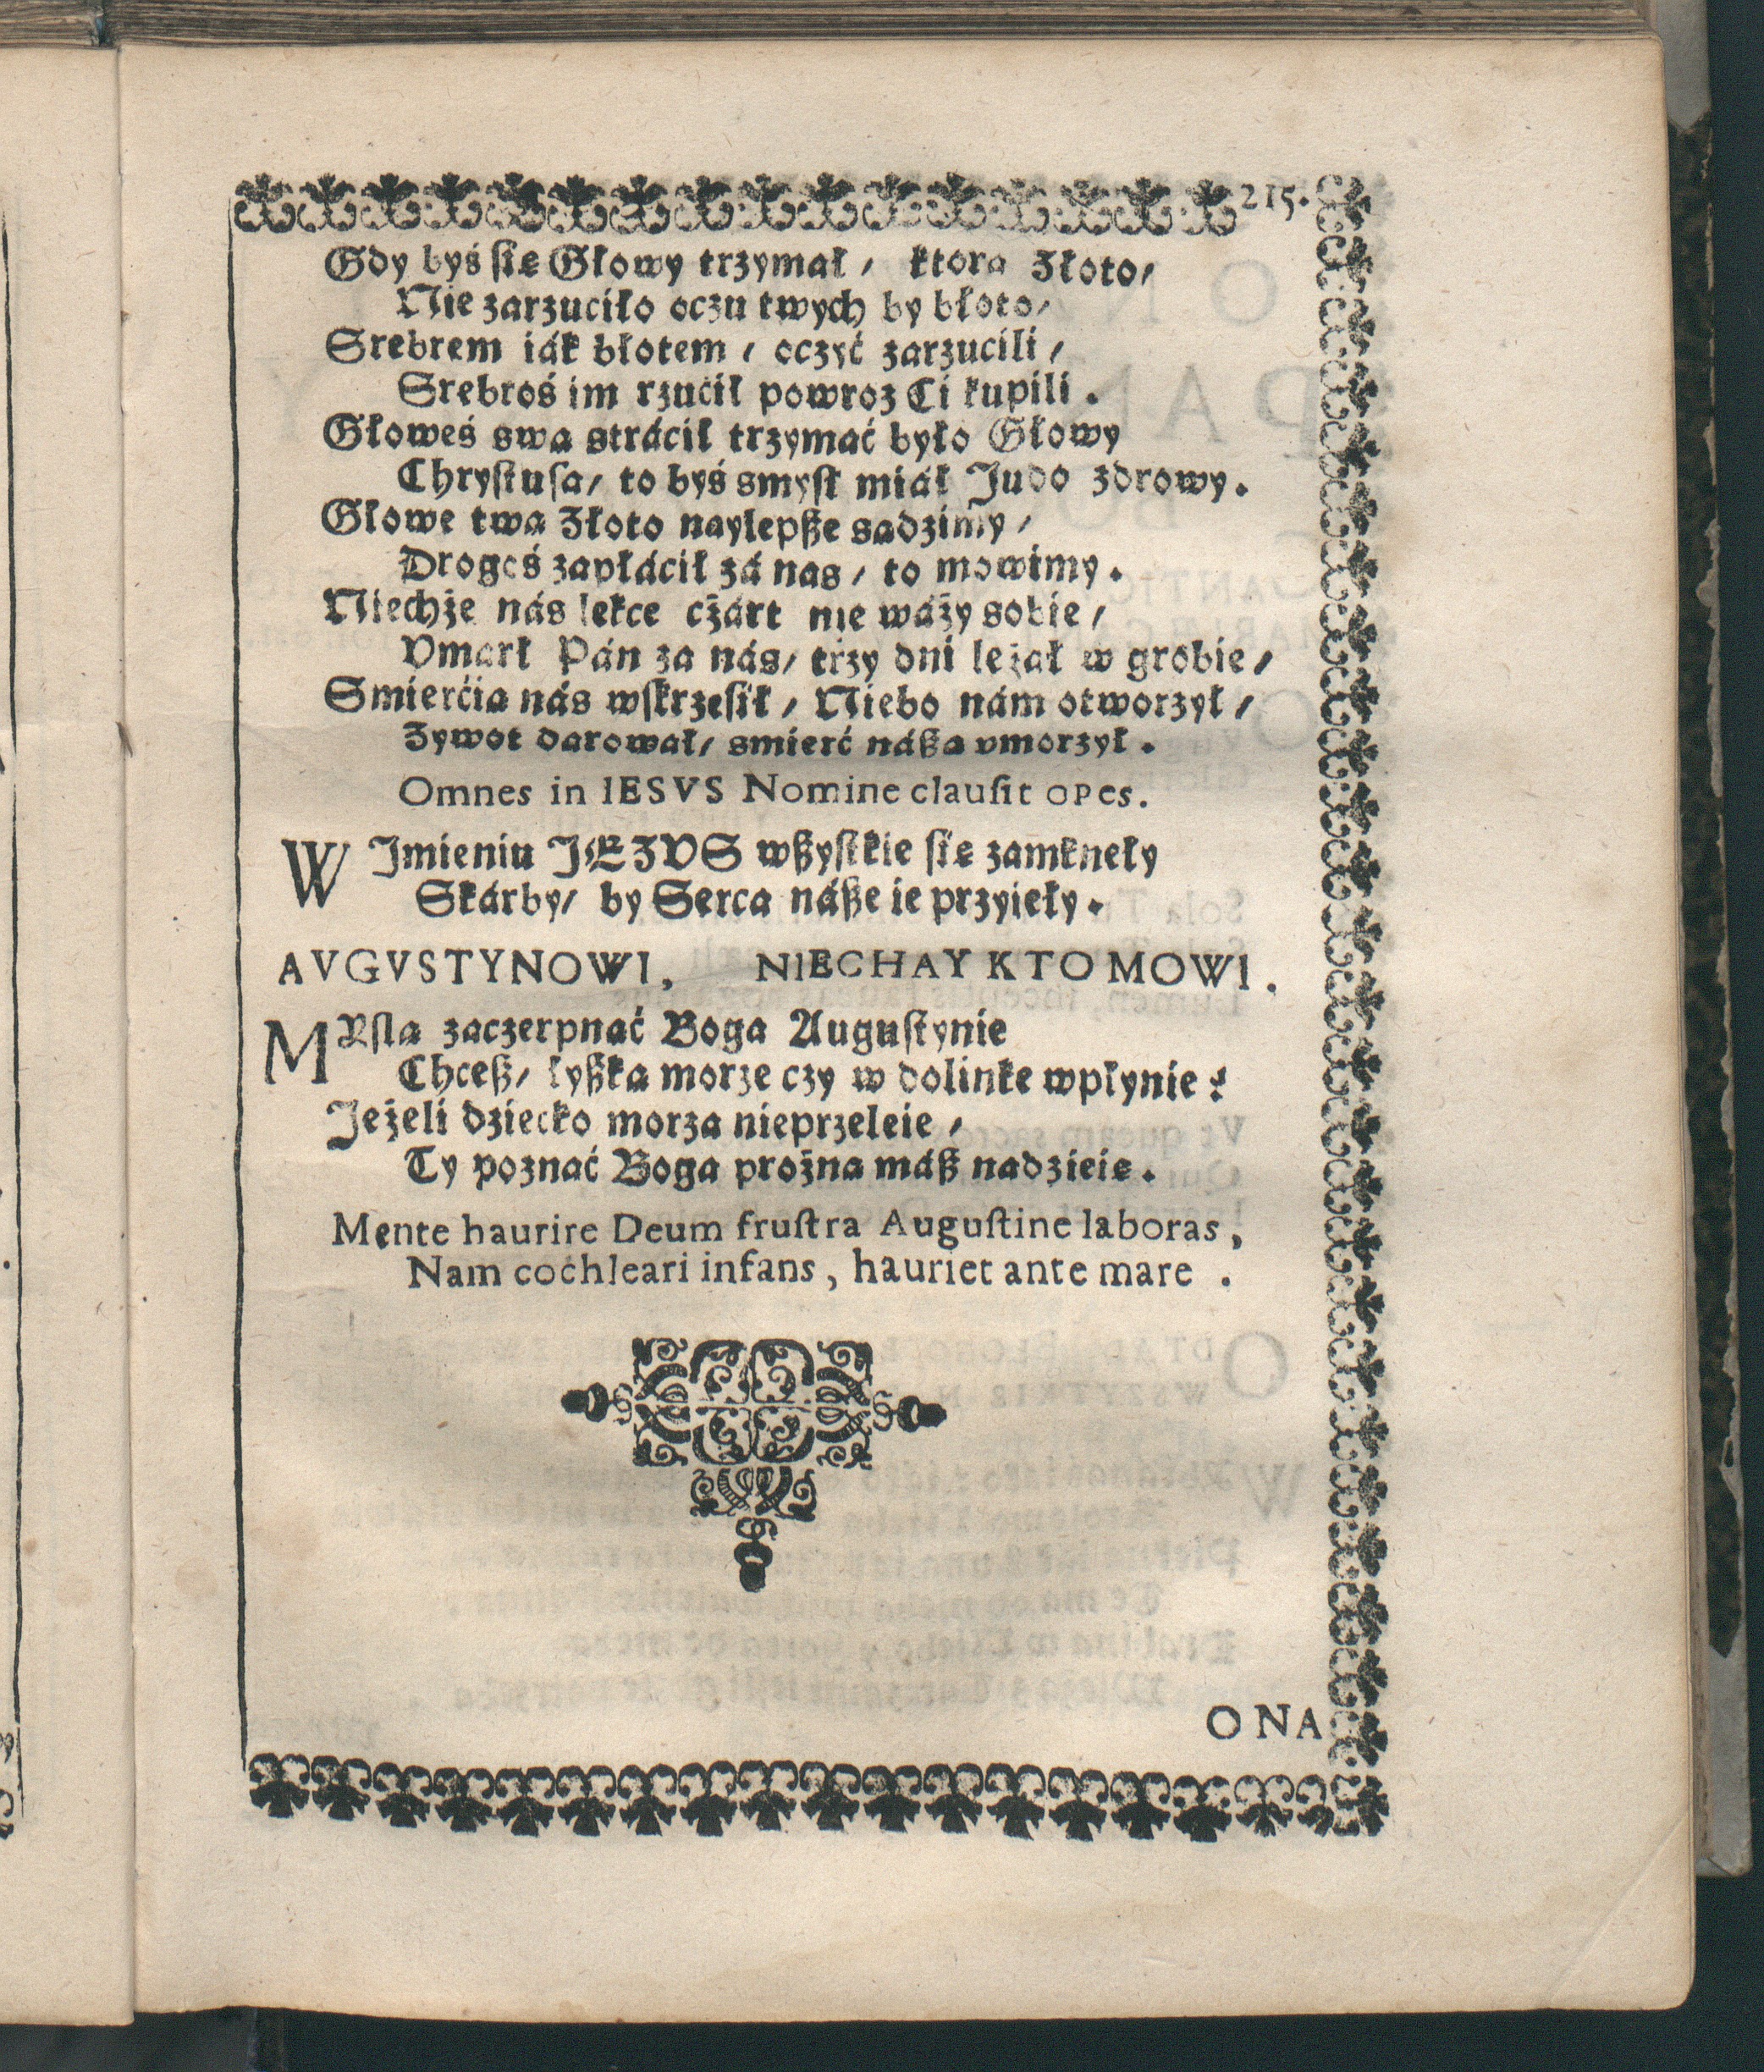 215.
Gdy byś ſię Głowy trzymał / ktora Złoto /
Nie zarzuciło oczu twych by błoto /
Srebrem iák błotem / oczyć zarzucili /
Srebroś im rzućił powroz Ci kupili .
Głoweś swa stráćił trzymać było Głowy
Chryſtuſa / to byś smyſł miáł Judo zdrowy .
Głowe twa Złoto naylepße sadzimy /
Drogoś zapłáćił zá nas / to mowimy .
Niechże nás lekce cżárt nie wáży sobie /
Vmarł Pán za nás / trzy dni leżał w grobie /
Smierćia nás wſkrzeſił / Niebo nám otworzył /
Zywot darował / smierć náßa vmorzył .
Omnes in IESVS Nomine clauſit OPes.
W Jmieniu JEZVS wßyſtkie ſię zamkneły
Skárby / by Serca náße ie przyieły .
AVGVSTYNOWI, NIECHAY KTO MOWI .
MYſla zaczerpnać Boga Auguſtynie
Chceß / łyßka morze czy w dolinke wpłynie ?
Jeżeli dziecko morza nieprzeleie /
Ty poznać Boga prożna máß nadzieię .
Mente haurire Deum fruſtra Auguſtine laboras ,
Nam cochleari infans , hauriet ante mare .
ONA